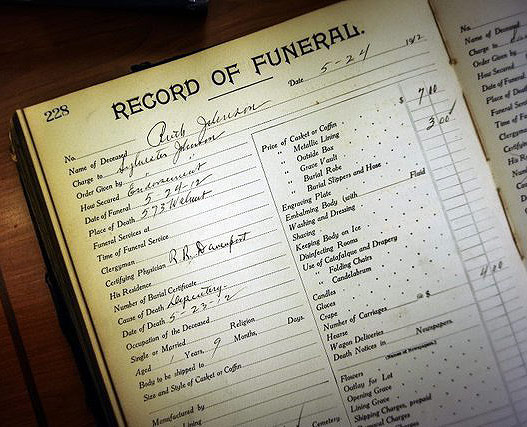 228
RECORD OF FUNERAL.
Date 5-24 1912
No.
Name of Deceased Ruth Johnson
Charge to Sylvester Johnson
Order Given by
How Secured Endorsement
Date of Funeral 5-24-12
Place of Death 573 Walnut
Funeral Services at
Time of Funeral Service
Clergyman
Certifying Physician R.R. Davenport
His Residence
Number of Burial Certificate
Cause of Death Dysentery
Date of Death 5-23-12
Occupation of the Deceased
Single or Married Religion
Aged Years, 9 Months, Days.
Body to be shipped to
Size and Style of Casket or Coffin
Manufactured by
Lining
Cemetery.
Price of Casket or Coffin $ 7 00
" Metallic Lining
" Outside Box 3 00
" Grave Vault
" Burial Robe
" Burial Slippers and Hose
Engraving Plate
Embalming Body (with Fluid
Washing and Dressing
Shaving
Keeping Body on Ice
Disinfecting Rooms
Use of Catafalque and Drapery
" Folding Chairs
" Candelabrum
Candles
Gloves
Crape
Number of Carriages @ $ 4 00
Hearse
Wagon Deliveries
Death Notices in Newspapers
(Names of Newspapers)
Flowers
Outlay for Lot
Opening Grave
Lining Grave
Shipping Charges, prepaid
Charges
No.
Name of Deceased
Charge to
Order Given by
How Secured
Date of Funeral
Place of Death
Funeral
Time of
Clergyman
Certifying
His Residence
Number of
Cause of
Date of